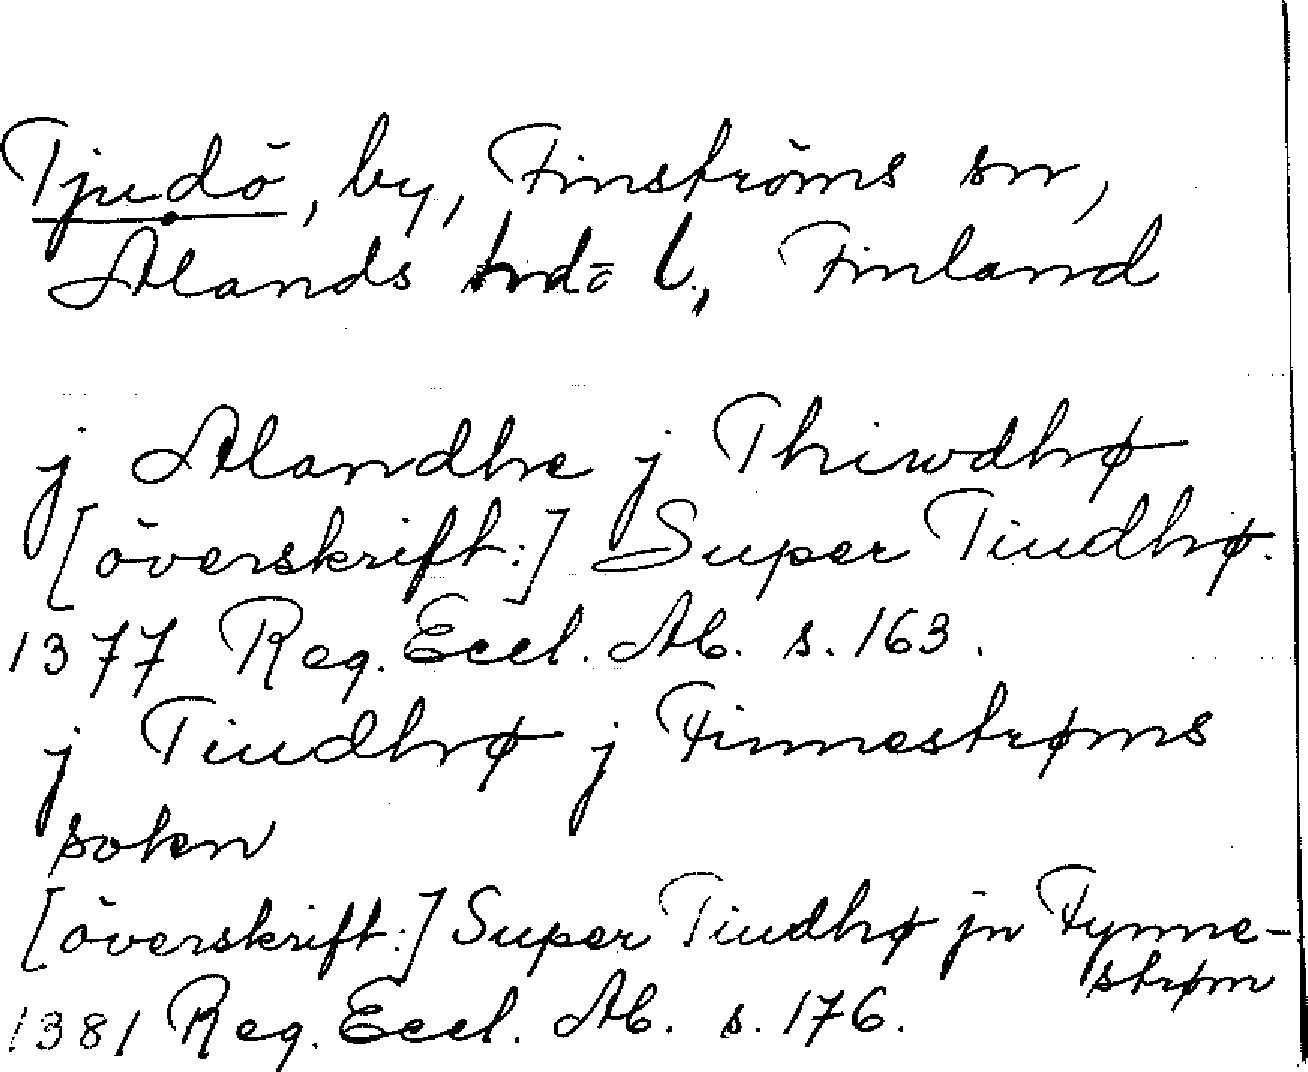 Tjudö, by, Finströms sn,
Ålands hd o l., Finland
j Alandhe j Thiwdhø
[överskrift:] Super Tiudhø.
1377 Reg. Eccl. Ab. s. 163.
j Tiudhø j Finnestrøms
sokn
[överskrift:] Super Tiudhø jn Fynne-
strøm
1381 Reg. Eccl. Ab. s. 176.